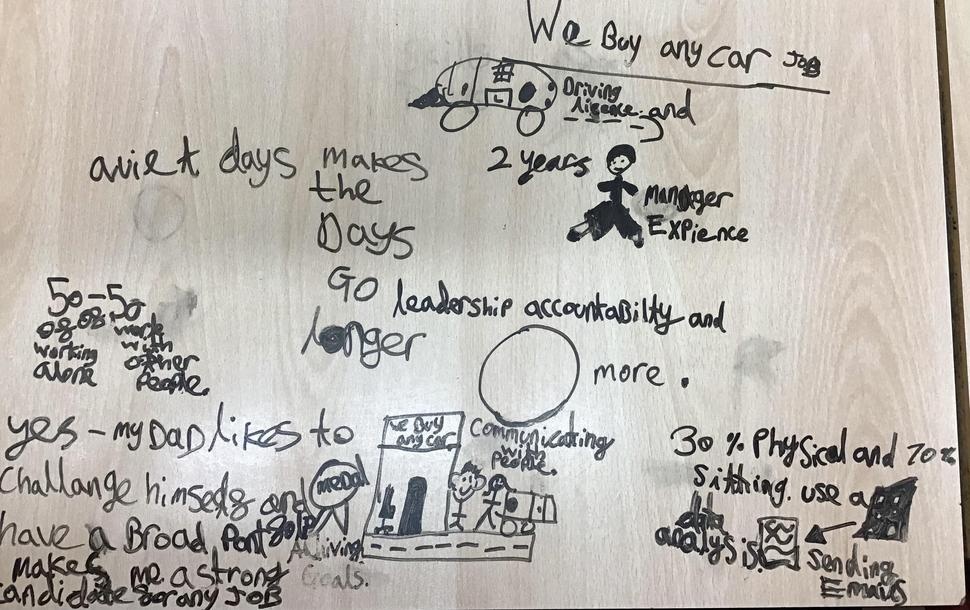 We Buy any car JOB
Driving
licence and
2 years
manager
Expience
auiet days makes
the
Days
GO
longer
50-50
of of
working
alone
work
with
other
People.
leadership accountabilty and
more.
yes - my DAD likes to
Challange himself and
have a Broad Pontfolio
makes me a strong
candidate for any JOB
medal
Achiving
Goals.
we Buy
any car
Communicating
with
people.
30% Physical and 70%
Sitting. use a
data
analysis
sending
Emails